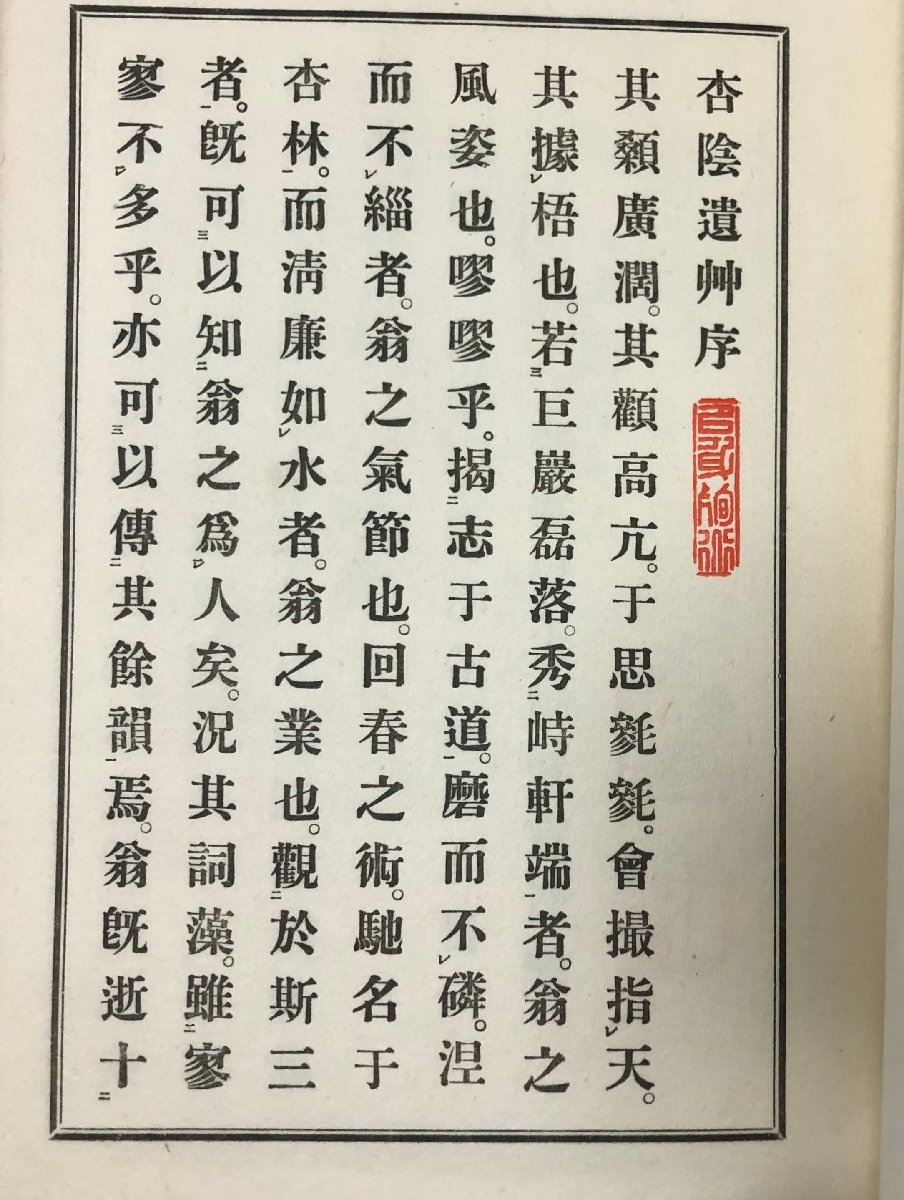 杏陰遺艸序
其顙廣濶。其顴高亢。于思毿毿。會撮指天。
其據梧也。若巨巖磊落。秀峙軒端者。翁之
風姿也。嘐嘐乎。揭志于古道。磨而不磷。涅
而不緇者。翁之氣節也。回春之術。馳名于
杏林。而淸廉如水者。翁之業也。觀於斯三
者。旣可以知翁之爲人矣。況其詞藻。雖寥
寥不多乎。亦可以傳其餘韻焉。翁旣逝十